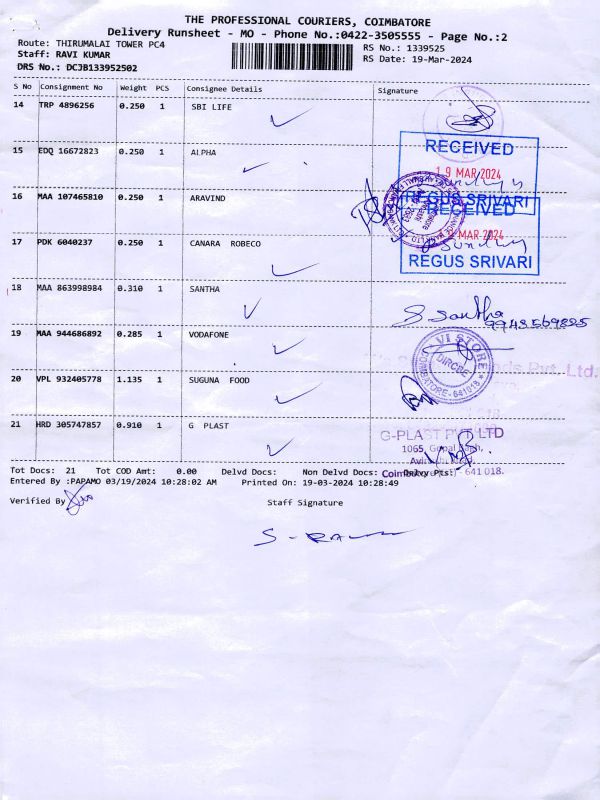 THE PROFESSIONAL COURIERS, COIMBATORE
Delivery Runsheet - MO - Phone No.:0422-3505555 - Page No.:2
Route: THIRUMALAI TOWER PC4
RS No.: 1339525
Staff: RAVI KUMAR
RS Date: 19-Mar-2024
DRS No.: DCJB133952502
S No Consignment No Weight PCS Consignee Details Signature
14 TRP 4896256 0.250 1 SBI LIFE
RECEIVED
15 EDQ 16672823 0.250 1 ALPHA
19 MAR 2024
REGUS SRIVARI
16 MAA 107465810 0.250 1 ARAVIND
RECEIVED
MAR 2024
17 PDK 6040237 0.250 1 CANARA ROBECO
REGUS SRIVARI
18 MAA 863998984 0.310 1 SANTHA
S. Santha
19 MAA 944686892 0.285 1 VODAFONE
VI STORE
COIMBATORE - 641018
20 VPL 932405778 1.135 1 SUGUNA FOOD
21 HRD 305747857 0.910 1 G PLAST
G-PLAST PVT LTD
Tot Docs: 21 Tot COD Amt: 0.00 Delvd Docs: Non Delvd Docs: Delvy Pts:
Coimbatore - 641 018.
Entered By :PAPAMO 03/19/2024 10:28:02 AM Printed On: 19-03-2024 10:28:49
Verified By
Staff Signature